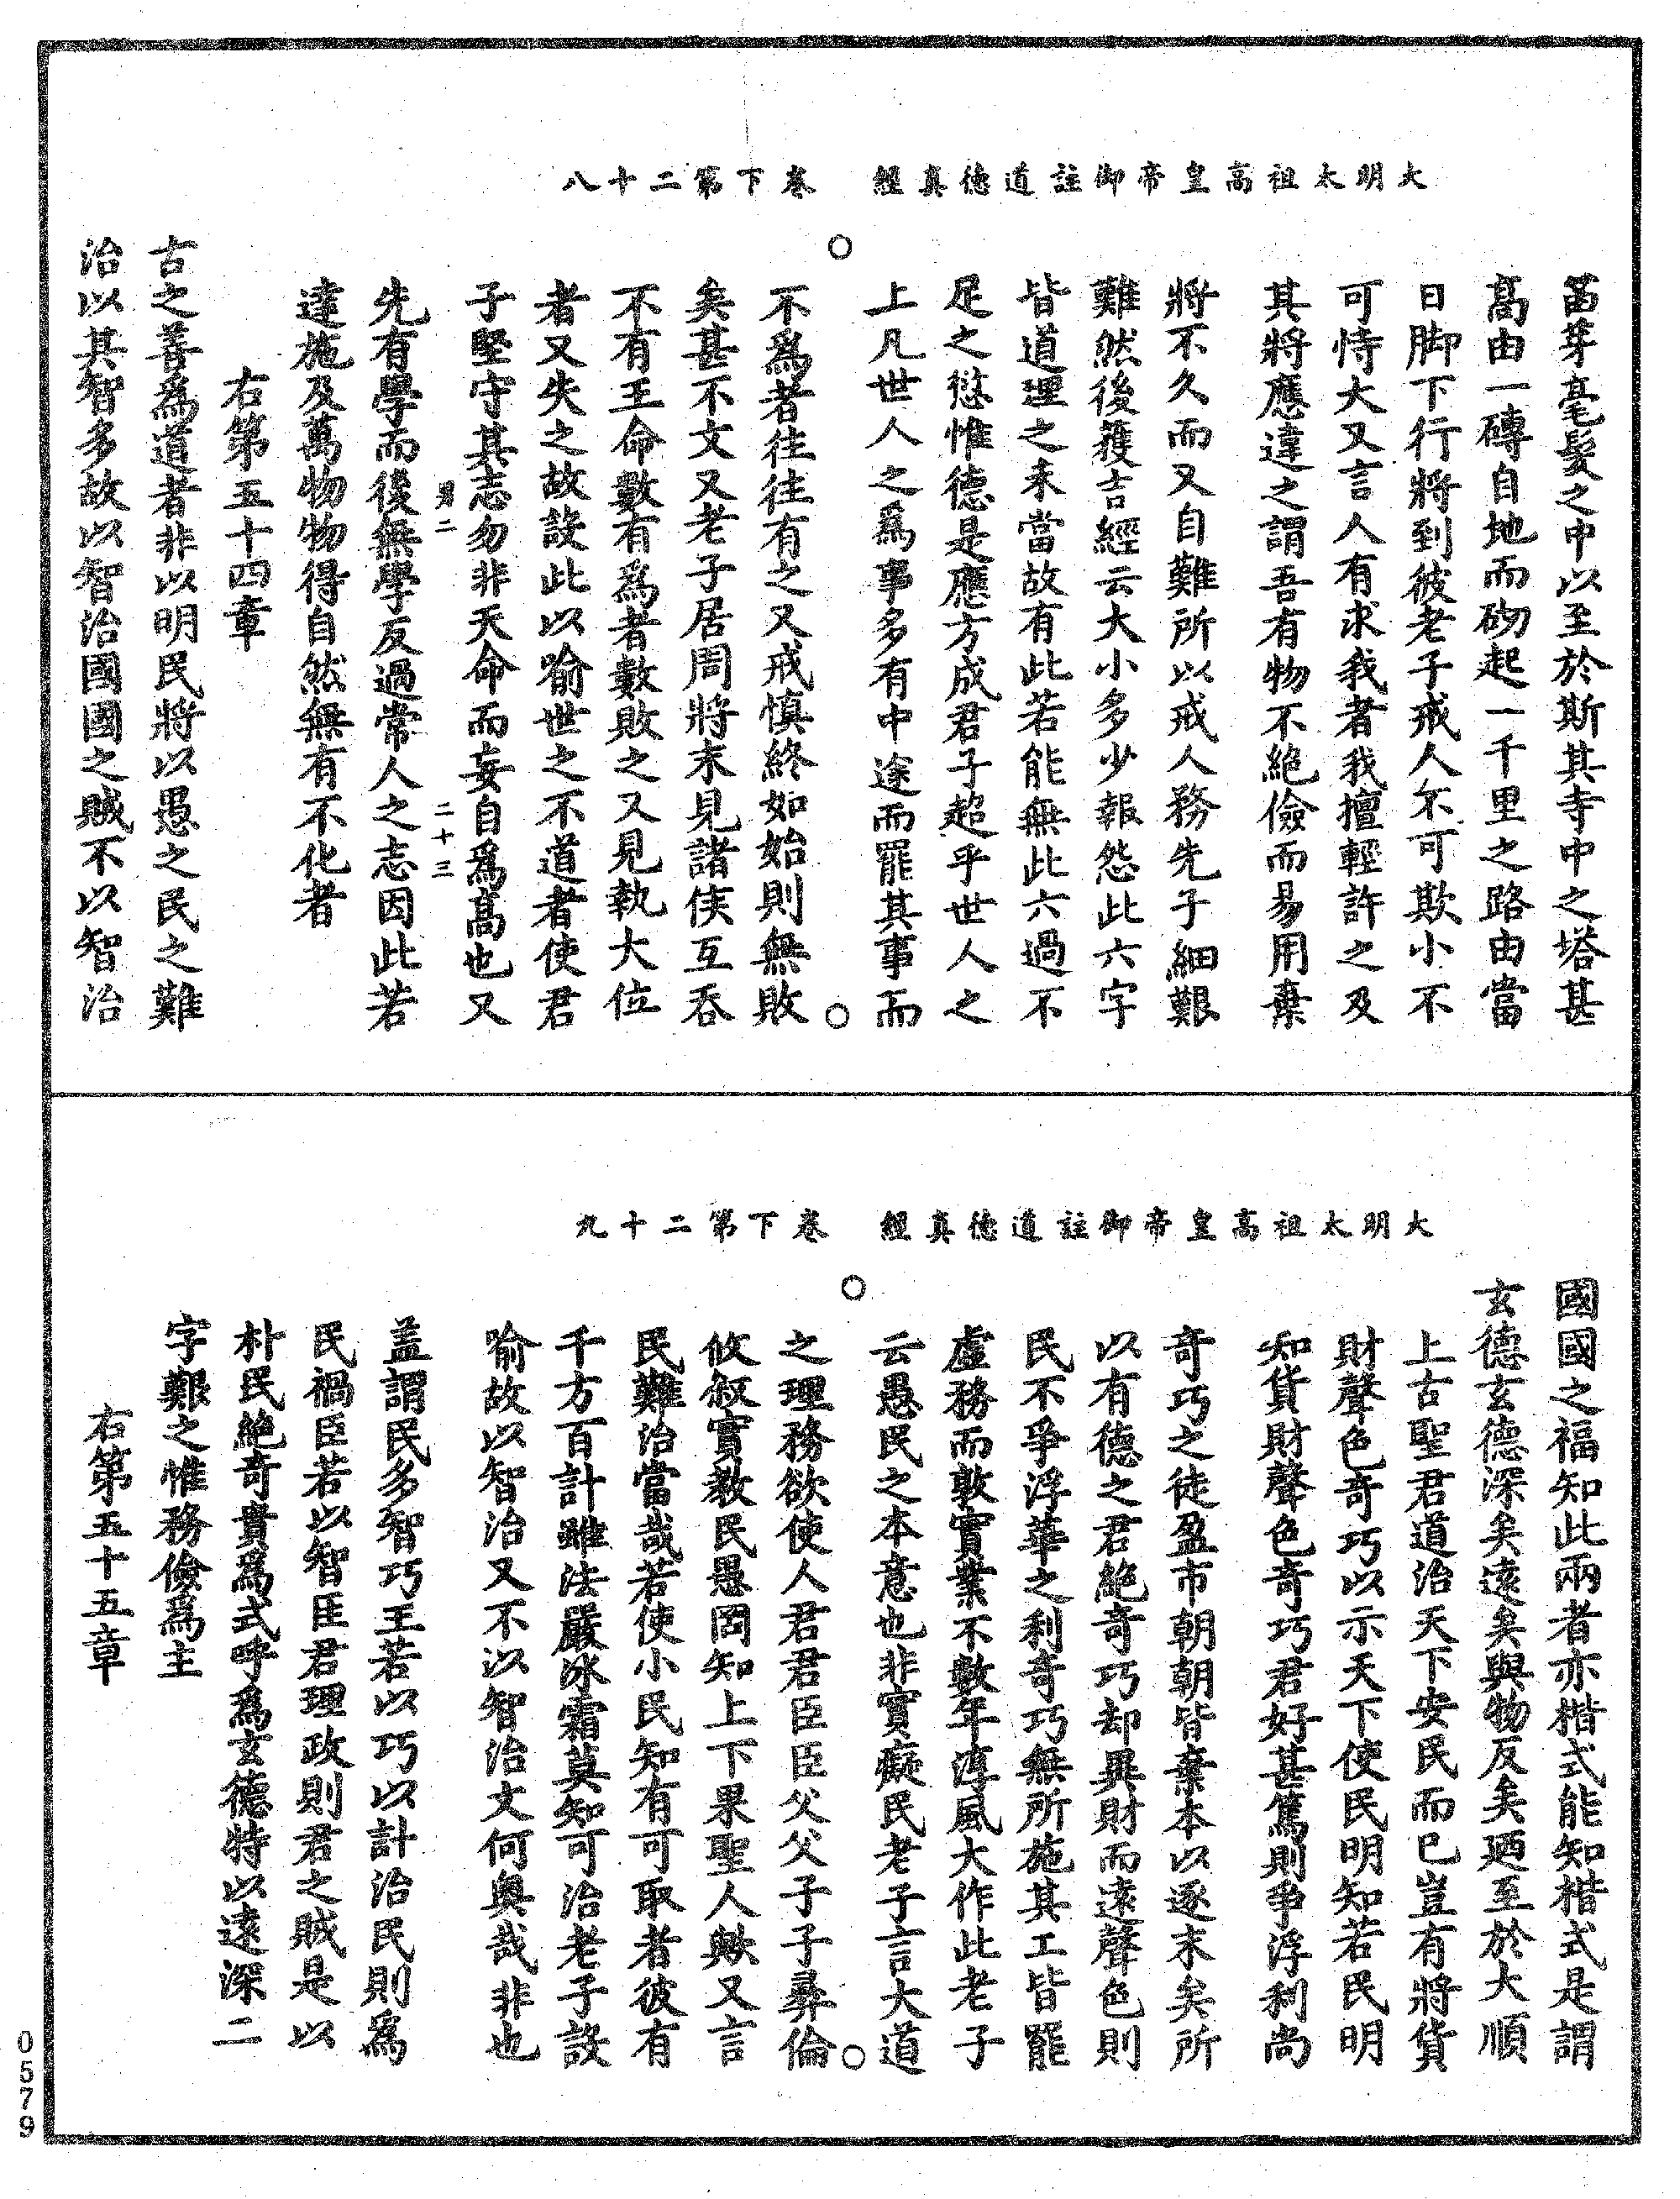 大明太祖高皇帝御註道德真經　卷下第二十八
菑芽毫髮之中以至於斯其寺中之塔甚
髙由一磚自地而砌起一千里之路由當
日脚下行將到彼老子戒人尓可欺小不
可恃大又言人有求我者我擅輕許之及
其將應違之謂吾有物不絶儉而易用棄
將不久而又自難所以戒人務先子細艱
難然後獲吉經云大小多少報怨此六字
皆道理之未當故有此若能無此六過不
足之愆惟德是應方成君子超乎世人之
上凡世人之爲事多有中途而罷其事而
不爲者往往有之又戒慎終如始則無敗
矣甚不文又老子居周將末見諸侯互吞
不有王命數有爲者數敗之又見執大位
者又失之故設此以喻世之不道者使君
子堅守其志勿非天命而妄自爲髙也又
男二　二十三
先有學而後無學反過常人之志因此若
達施及萬物物得自然無有不化者
右第五十四章
古之善爲道者非以明民將以愚之民之難
治以其智多故以智治國國之賊不以智治
大明太祖高皇帝御註道德真經　卷下第二十九
國國之福知此兩者亦楷式能知楷式是謂
玄德玄德深矣遠矣與物反矣廼至於大順
上古聖君道治天下安民而已豈有將貨
財聲色奇巧以示天下使民明知若民明
知貨財聲色奇巧君好甚篤則爭浮利尚
奇巧之徒盈市朝朝皆棄本以逐末矣所
以有德之君絶奇巧却異財而遠聲色則
民不爭浮華之利奇巧無所施其工皆罷
虛務而敦實業不數年淳風大作此老子
云愚民之本意也非實癡民老子言大道
之理務欲使人君君臣臣父父子子彞倫
攸叙實教民愚罔知上下果聖人歟又言
民難治當哉若使小民知有可取者彼有
千方百計雖法嚴冰霜莫知可治老子設
喻故以智治又不以智治文何奥哉非也
盖謂民多智巧王若以巧以計治民則爲
民禍臣若以智匡君理政則君之賊是以
朴民絶奇貴爲式呼爲玄德特以遠深二
字艱之惟務儉爲主
右第五十五章
0579